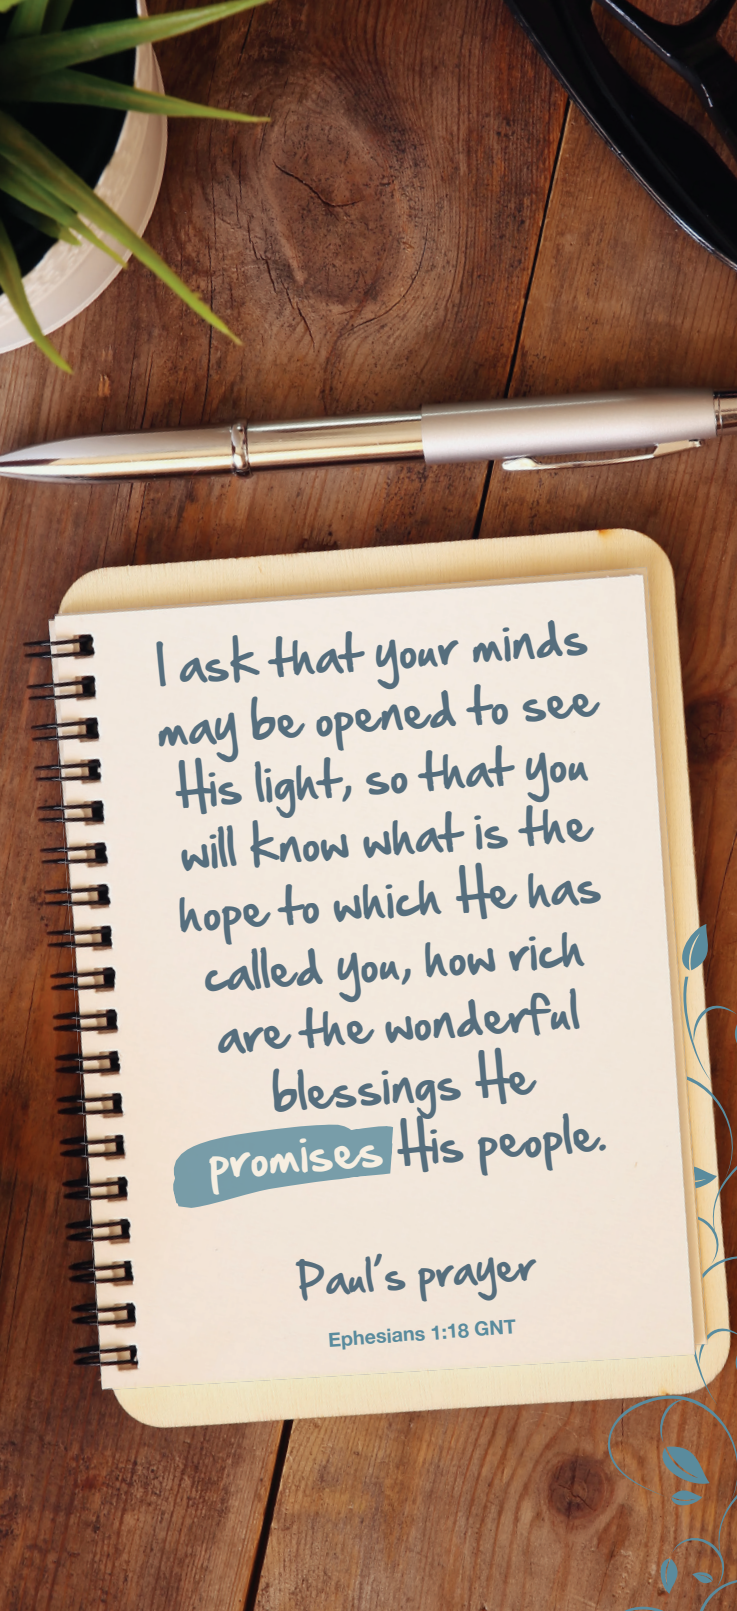 I ask that your minds
may be opened to see
His light, so that you
will know what is the
hope to which He has
called you, how rich
are the wonderful
blessings He
promises His people.
Paul's prayer
Ephesians 1:18 GNT